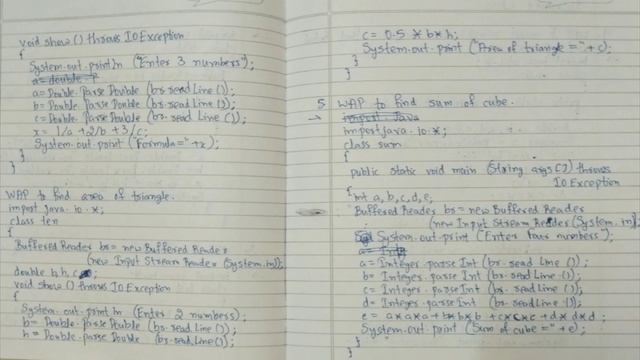 void show () throws IOException
{
System.out.println ("Enter 3 numbers");
a = Double.parse Double (br.read Line ());
b = Double.parse Double (br.read Line ());
c = Double.parse Double (br.read Line ());
x = 1/a + 2/b + 3/c;
System.out.print ("Formula=" + x);
}
}
WAP to find area of triangle.
import java.io.*;
class ten
{
Buffered Reader br = new Buffered Reader
(new Input Stream Reader (System.in));
double b, h, c;
void show () throws IOException
{
System.out.println (Enter 2 numbers);
b = Double.parse Double (br.read Line ());
h = Double.parse Double (br.read Line ());
c = 0.5 * b * h;
System.out.print ("Area of triangle =" + c);
}
}
5 WAP to find sum of cube.
→ import Java
import java.io.*;
class sum
{
public static void main (String args []) throws
IO Exception
{
int a, b, c, d, e;
Buffered Reader br = new Buffered Reader
(new Input Stream Reader (System.in));
System.out.print (Enter four numbers");
a = Integer.parse Int (br.read Line ());
b = Integer.parse Int (br.read Line ());
c = Integer.parse Int (br.read Line ());
d = Integer.parse Int (br.read Line ());
e = a*a*a + b*b*b + c*c*c + d*d*d;
System.out.print (Sum of cube =" + e);
}
}